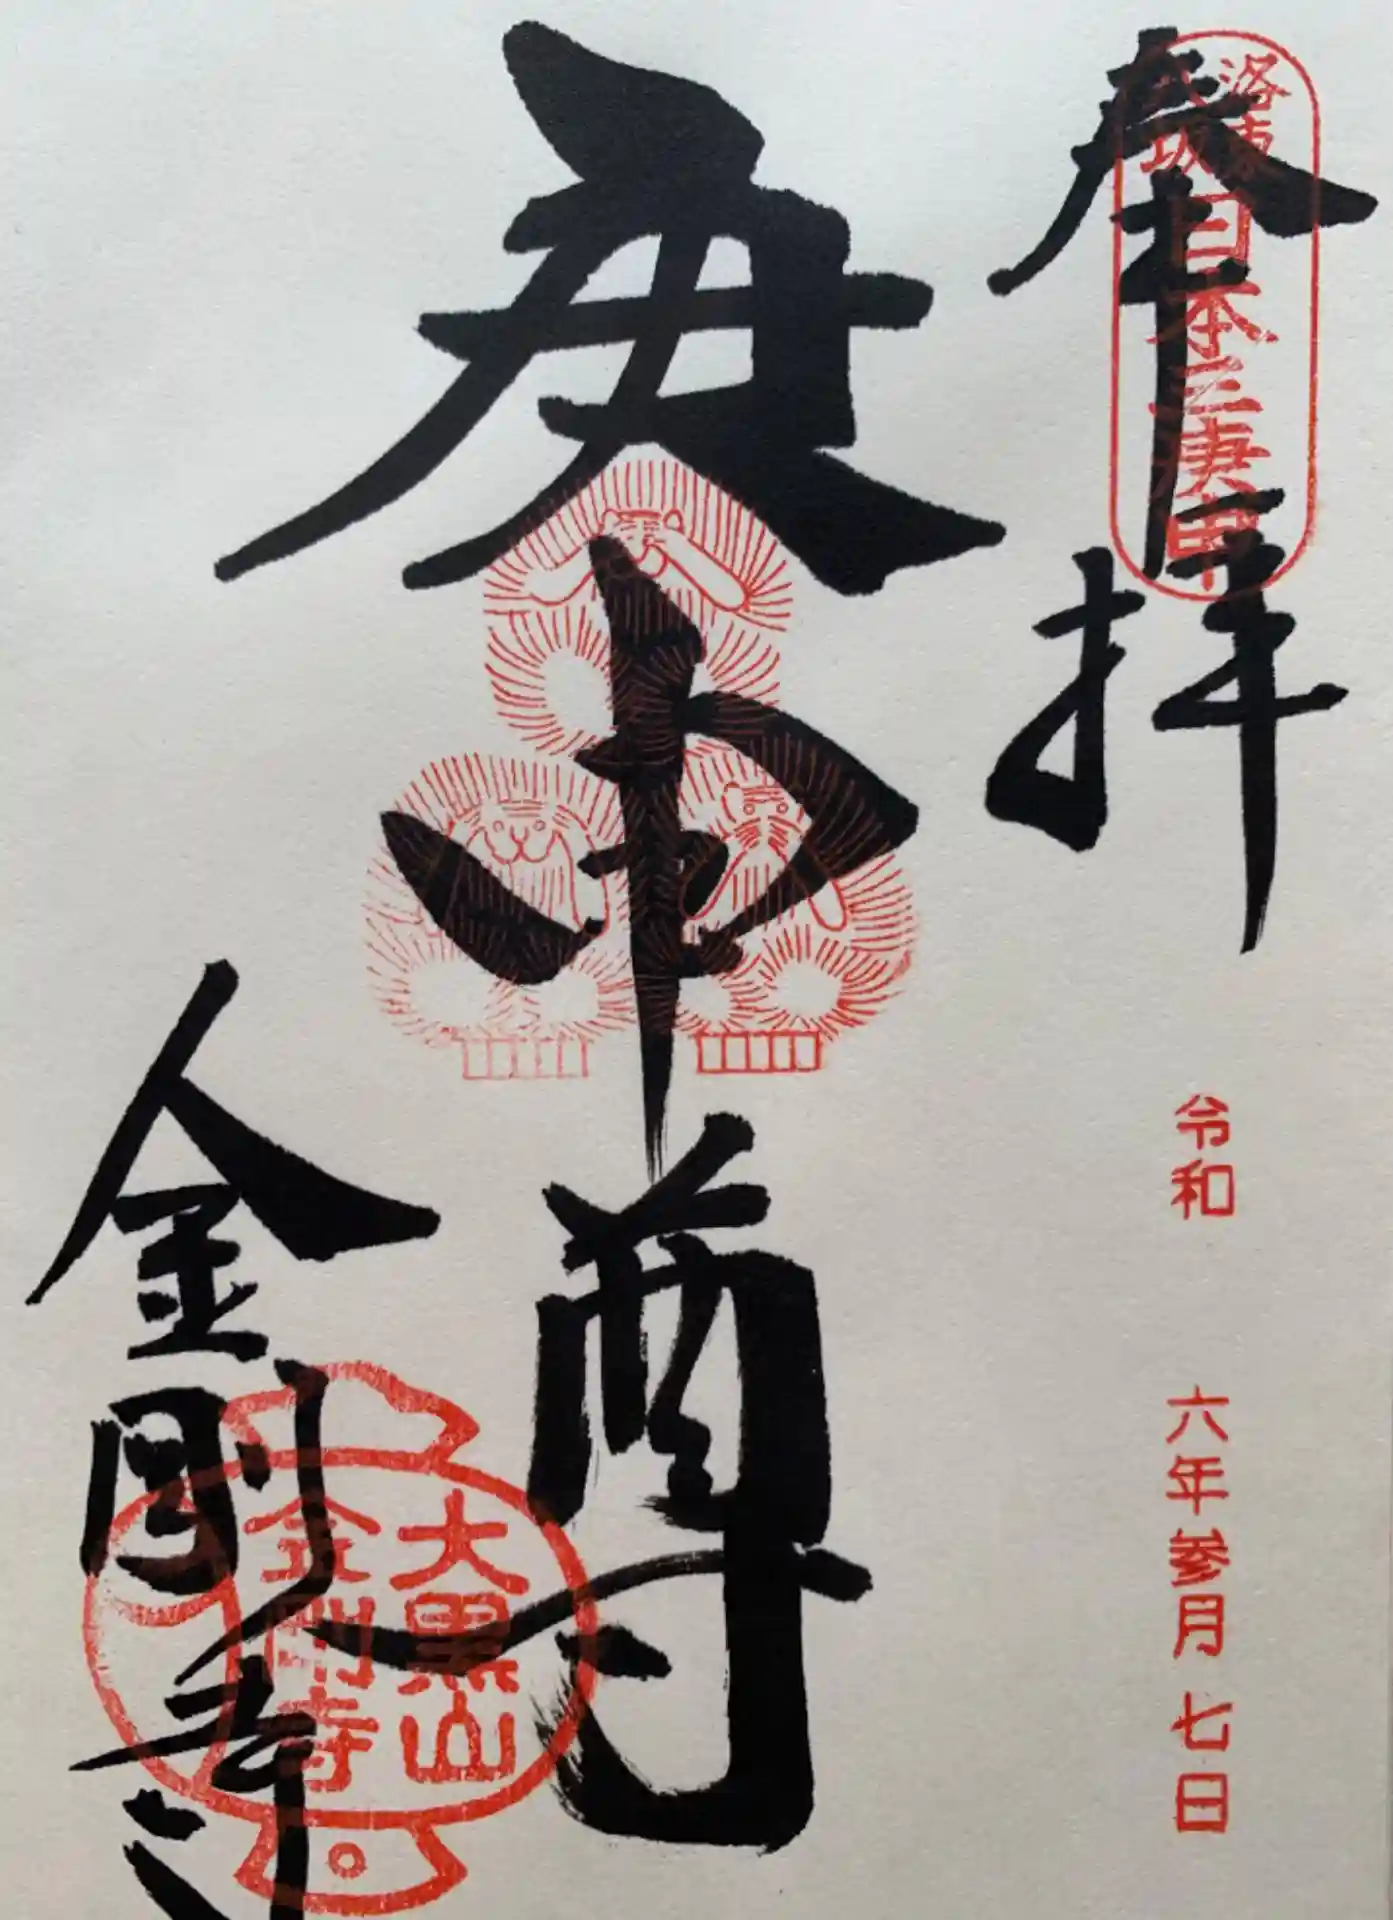 奉拝
洛東
八坂
日本三庚申
令和 六年参月 七日
庚申尊
金剛寺
大黒山
金剛寺